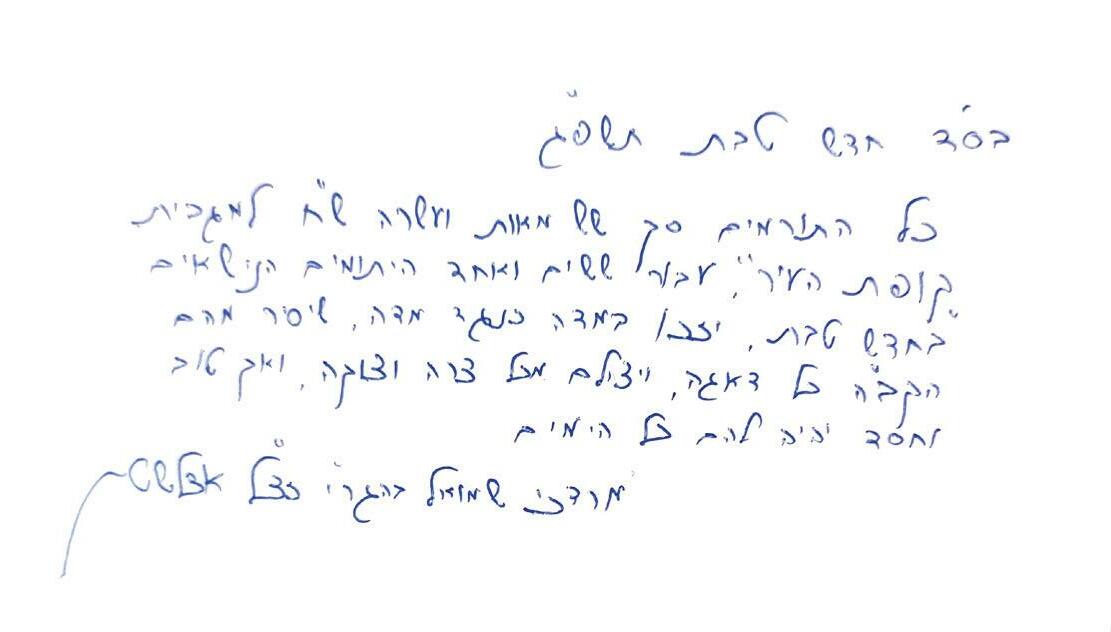 בס"ד חדש טבת תשפ"ג
כל התורמים סך שש מאות ועשרה ש"ח למגבית
"קופת העיר", עבור ששים ואחד היתומים הנישאים
בחדש טבת, יזכו במדה כנגד מדה, שיסיר מהם
הקב"ה כל דאגה, ויצילם מכל צרה וצוקה, ואך טוב
וחסד יהיה להם כל הימים
מרדכי שמואל בהגר"י זצ"ל אדלשטין